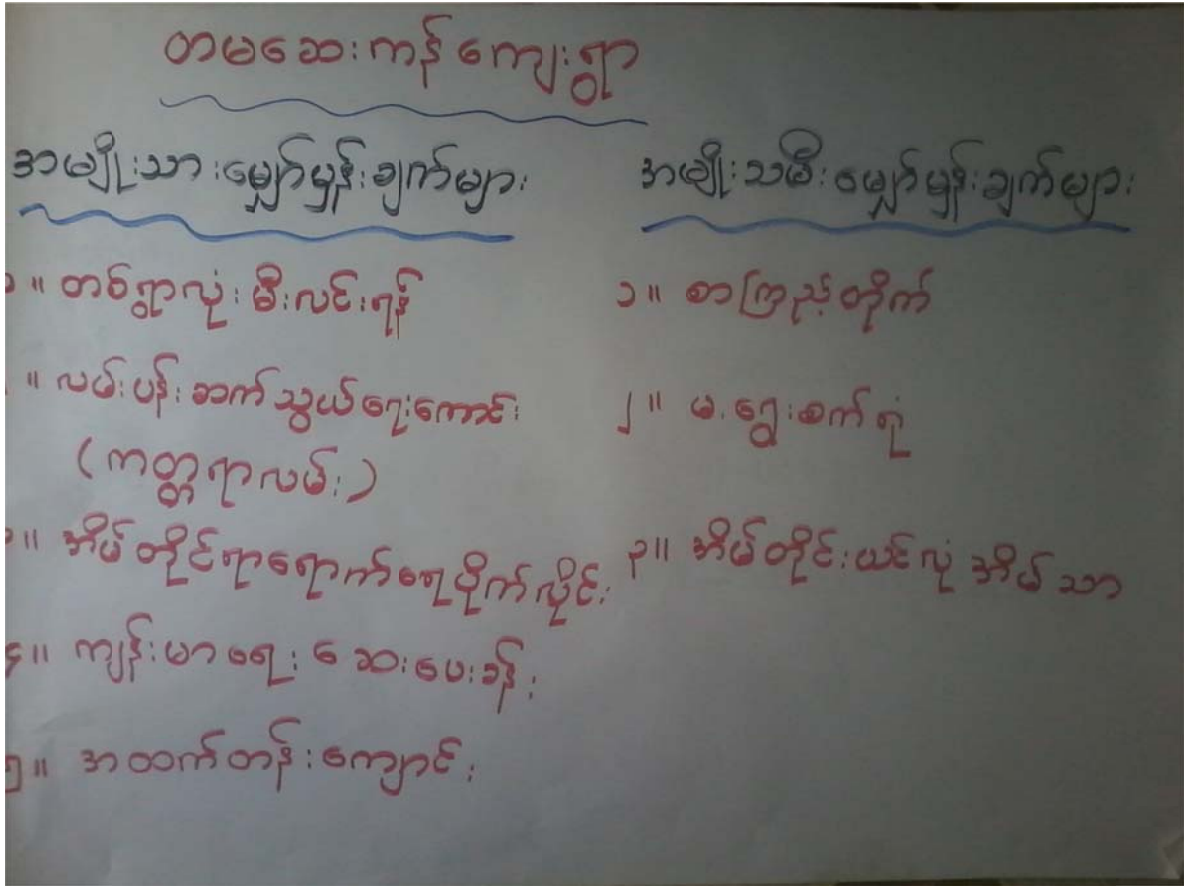 တမဆေးကန်ကျေးရွာ
အမျိုးသားမျှော်မှန်းချက်များ
၁။ တစ်ရွာလုံးမီးလင်းရန်
။ လမ်းပန်းဆက်သွယ်ရေးကောင်း
(ကတ္တရာလမ်း)
၃။ အိမ်တိုင်ရာရောက်ရေပိုက်လိုင်း
၄။ ကျန်းမာရေးဆေးပေးခန်း
၅။ အထက်တန်းကျောင်း
အမျိုးသမီးမျှော်မှန်းချက်များ
၁။ စာကြည့်တိုက်
၂။ မ.ရွေးစက်ရုံ
၃။ အိမ်တိုင်းယင်လုံအိမ်သာ